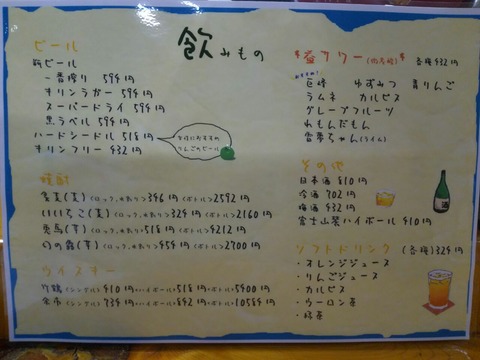 飲みもの
ビール
瓶ビール
一番搾り 594円
キリンラガー 594円
スーパードライ 594円
黒ラベル 594円
ハードシードル 518円
キリンフリー 432円
女性におすすめ
りんごのビール
焼酎
(麦)(ロック、水割り)346円(ボトル)2592円
いいちこ(麦)(ロック、水割り)324円(ボトル)2160円
(芋)(ロック、水割り)518円(ボトル)4212円
幻の露(芋)(ロック、水割り)454円(ボトル)2700円
ウイスキー
(シングル)410円(ハイボール)518円(ボトル)5400円
余市(シングル)734円(ハイボール)842円(ボトル)10584円
サワー 各種432円
おすすめ!
巨峰 ゆずみつ 青りんご
ラムネ カルピス
グレープフルーツ
れもんだもん
雷夢ちゃん(ライム)
その他
日本酒 810円
冷酒 702円
梅酒 432円
富士山 ハイボール 410円
酒
ソフトドリンク (各種)324円
・オレンジジュース
・りんごジュース
・カルピス
・ウーロン茶
・緑茶